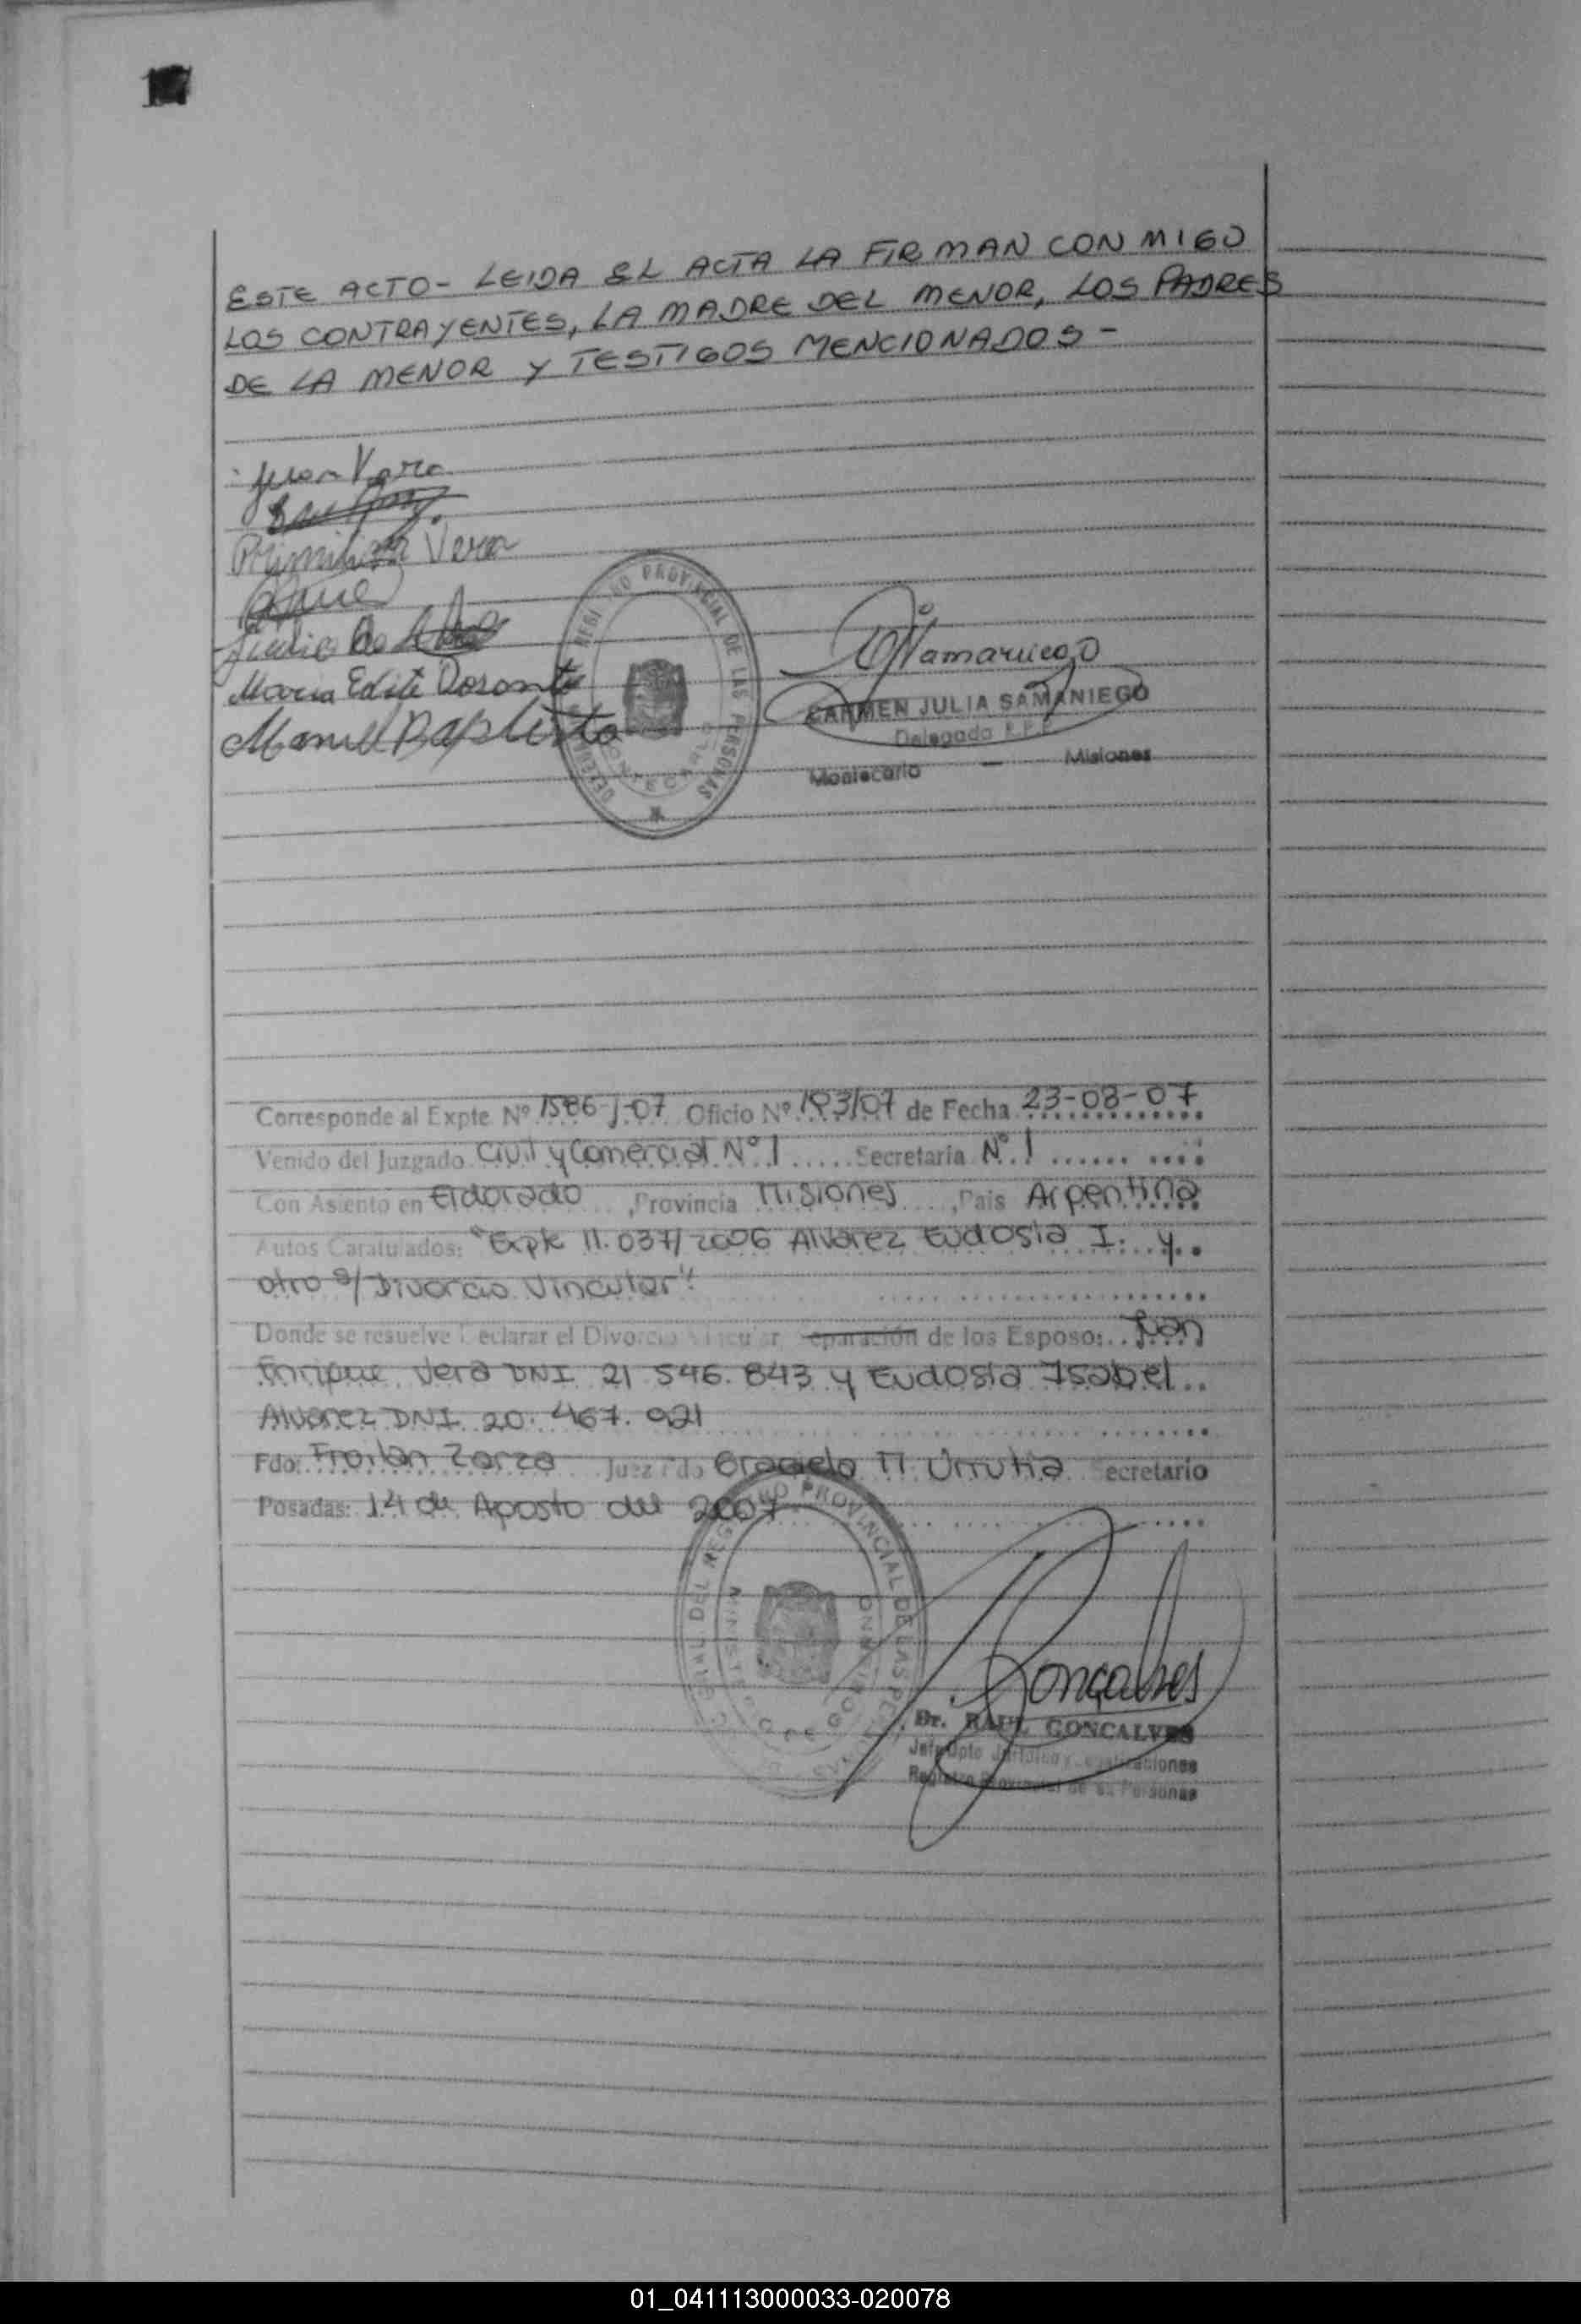 ESTE ACTO - LEIDA EL ACTA LA FIRMAN CON MIGO
LOS CONTRAYENTES, LA MADRE DEL MENOR, LOS PADRES
DE LA MENOR Y TESTIGOS MENCIONADOS -
Juan Vera
Vera
Maria Edite Dorante
Manuel Baptista
REGISTRO PROVINCIAL DE LAS PERSONAS
MONTECARLO
CARMEN JULIA SAMANIEGO
Delegada R.P.P.
Montecarlo — Misiones
Corresponde al Expte Nº 1586-J-07 Oficio Nº 193/07 de Fecha 23-08-07
Venido del Juzgado Civil y Comercial Nº 1 Secretaria Nº 1
Con Asiento en Eldorado, Provincia Misiones, Pais Argentina
Autos Caratulados: "Expte 11.037/2006 Alvarez Eudosia I. y
otro s/ Divorcio Vincular"
Donde se resuelve Declarar el Divorcio Vincular Separación de los Esposo: Juan
Enrique Vera DNI 21 546. 843 y Eudosia Isabel
Alvarez DNI 20. 467. 921
Fdo: Froilan Zarza Juez Fdo Graciela M Urrutia Secretario
Posadas: 14 de Agosto del 2007
REGISTRO PROVINCIAL DE LAS PERSONAS
MINISTERIO DE GOBIERNO
Gonçalves
Dr. RAUL GONCALVES
Jefe Dpto Jurídico y
Registro Provincial de las Personas
01_041113000033-020078